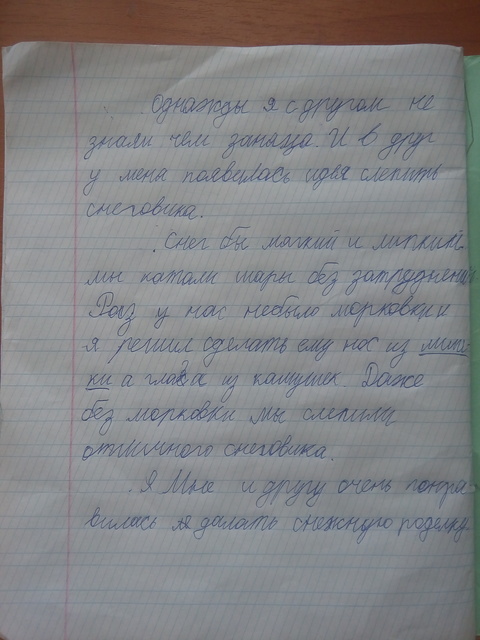 Однажды я с другом не
знали чем заняца. И в друг
у меня появилась идея слепить
снеговика.
Снег бы мягкий и липкий
мы катали шары без затруднения
Раз у нас небыло морковки и
я решил сделать ему нос из
ки а глаза из камушек. Даже
без морковки мы слепили
отличного снеговика.
Я Мне и другу очень понра
вилась далать снежную роделку